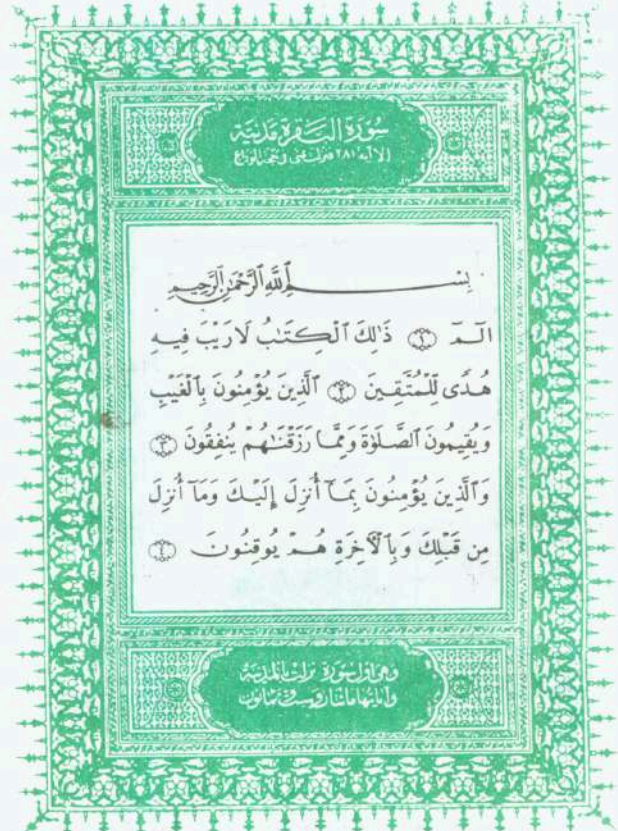 سُورَةُ الْبَقَرَةِ مَدَنِيَّة
إلا آية ٢٨١ فنزلت بمنى في حجة الوداع
بِسْمِ ٱللَّهِ ٱلرَّحْمَٰنِ ٱلرَّحِيمِ
الٓمٓ ۝١ ذَٰلِكَ ٱلْكِتَٰبُ لَا رَيْبَ فِيهِ
هُدًى لِّلْمُتَّقِينَ ۝٢ ٱلَّذِينَ يُؤْمِنُونَ بِٱلْغَيْبِ
وَيُقِيمُونَ ٱلصَّلَوٰةَ وَمِمَّا رَزَقْنَٰهُمْ يُنفِقُونَ ۝٣
وَٱلَّذِينَ يُؤْمِنُونَ بِمَآ أُنزِلَ إِلَيْكَ وَمَآ أُنزِلَ
مِن قَبْلِكَ وَبِٱلْأَخِرَةِ هُمْ يُوقِنُونَ ۝٤
وهي أول سورة نزلت بالمدينة
وآياتها مائتان وست وثمانون